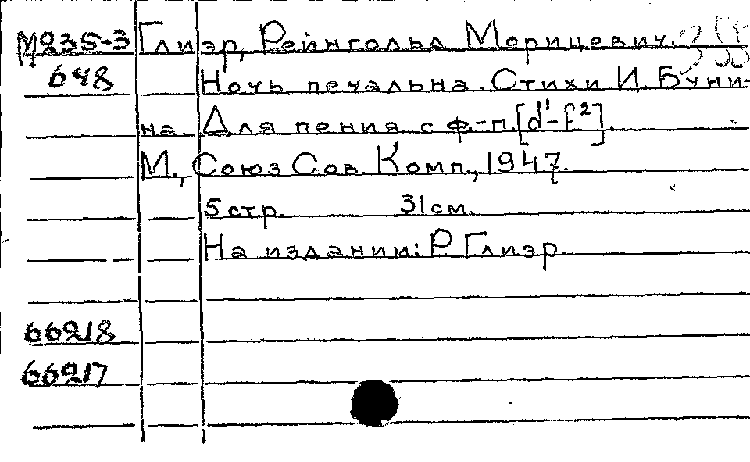 М235-3 Глиэр, Рейнгольд Морицевич.
648 Ночь печальна. Стихи И. Буни-
на Для пения с ф.-п. [d¹-f²].
М., Союз Сов. Комп., 1947.
5 стр. 31 см.
На издании: Р. Глиэр.
66218
66217